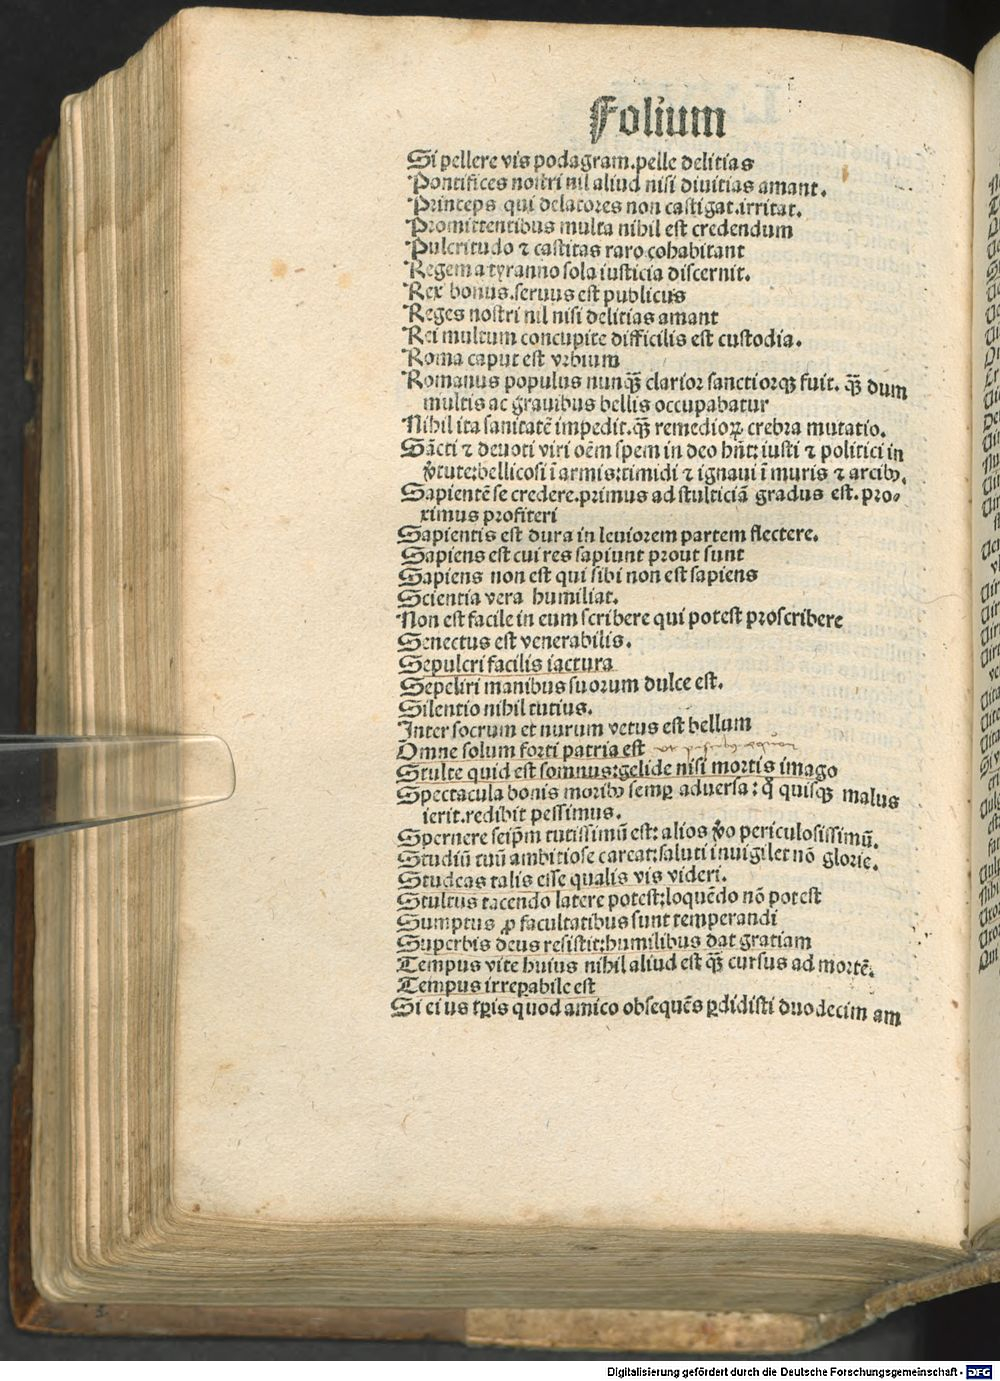 Folium
Si pellere vis podagram.pelle delitias
Pontifices nostri nil aliud nisi diuitias amant.
Princeps qui delatores non castigat.irritat.
Promittentibus multa nihil est credendum
Pulcritudo ⁊ castitas raro cohabitant
Regem a tyranno sola iusticia discernit.
Rex bonus.seruus est publicus
Reges nostri nil nisi delitias amant
Rei multum concupite difficilis est custodia.
Roma caput est vrbium
Romanus populus nunqꝫ̄ clarior sanctiorqꝫ fuit. qꝫ̄ dum
multis ac grauibus bellis occupabatur
Nihil ita sanitatē impedit.qꝫ̄ remedioꝝ crebra mutatio.
Sācti ⁊ deuoti viri oēm spem in deo hn̄t: iusti ⁊ politici in
v̓tute:bellicosi ī armis:timidi ⁊ ignaui ī muris ⁊ arcibꝫ.
Sapientē se credere.primus ad stulticiā gradus est. pro-
ximus profiteri
Sapientis est dura in leuiorem partem flectere.
Sapiens est cui res sapiunt prout sunt
Sapiens non est qui sibi non est sapiens
Scientia vera humiliat.
Non est facile in eum scribere qui potest proscribere
Senectus est venerabilis.
Sepulcri facilis iactura
Sepeliri manibus suorum dulce est.
Silentio nihil tutius.
Inter socrum et nurum vetus est bellum
Omne solum forti patria est
Stulte quid est somnus:gelide nisi mortis imago
Spectacula bonis moribꝫ semꝑ aduersa: q̄ quisqꝫ malus
ierit.redibit pessimus.
Spernere seip̄m tutissimū est: alios v̓o periculosissimū.
Studiū tuū ambitiose careat:saluti inuigilet nō glorie.
Studeas talis esse qualis vis videri.
Stultus tacendo latere potest:loquēdo nō potest
Sumptus ꝓ facultatibus sunt temperandi
Superbis deus resistit:humilibus dat gratiam
Tempus vite huius nihil aliud est qꝫ̄ cursus ad mortē.
Tempus irreparabile est
Si ei us tꝑis quod amico obsequēs ꝑdidisti duodecim am
Digitalisierung gefördert durch die Deutsche Forschungsgemeinschaft - DFG